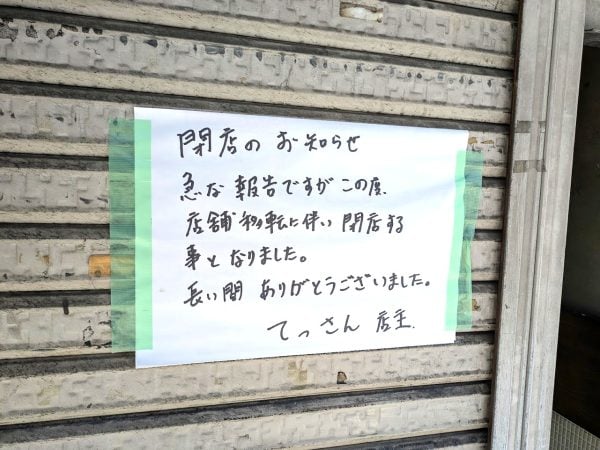 閉店のお知らせ
急な報告ですがこの度、
店舗移転に伴い閉店する
事となりました。
長い間 ありがとうございました。
てっさん 店主.